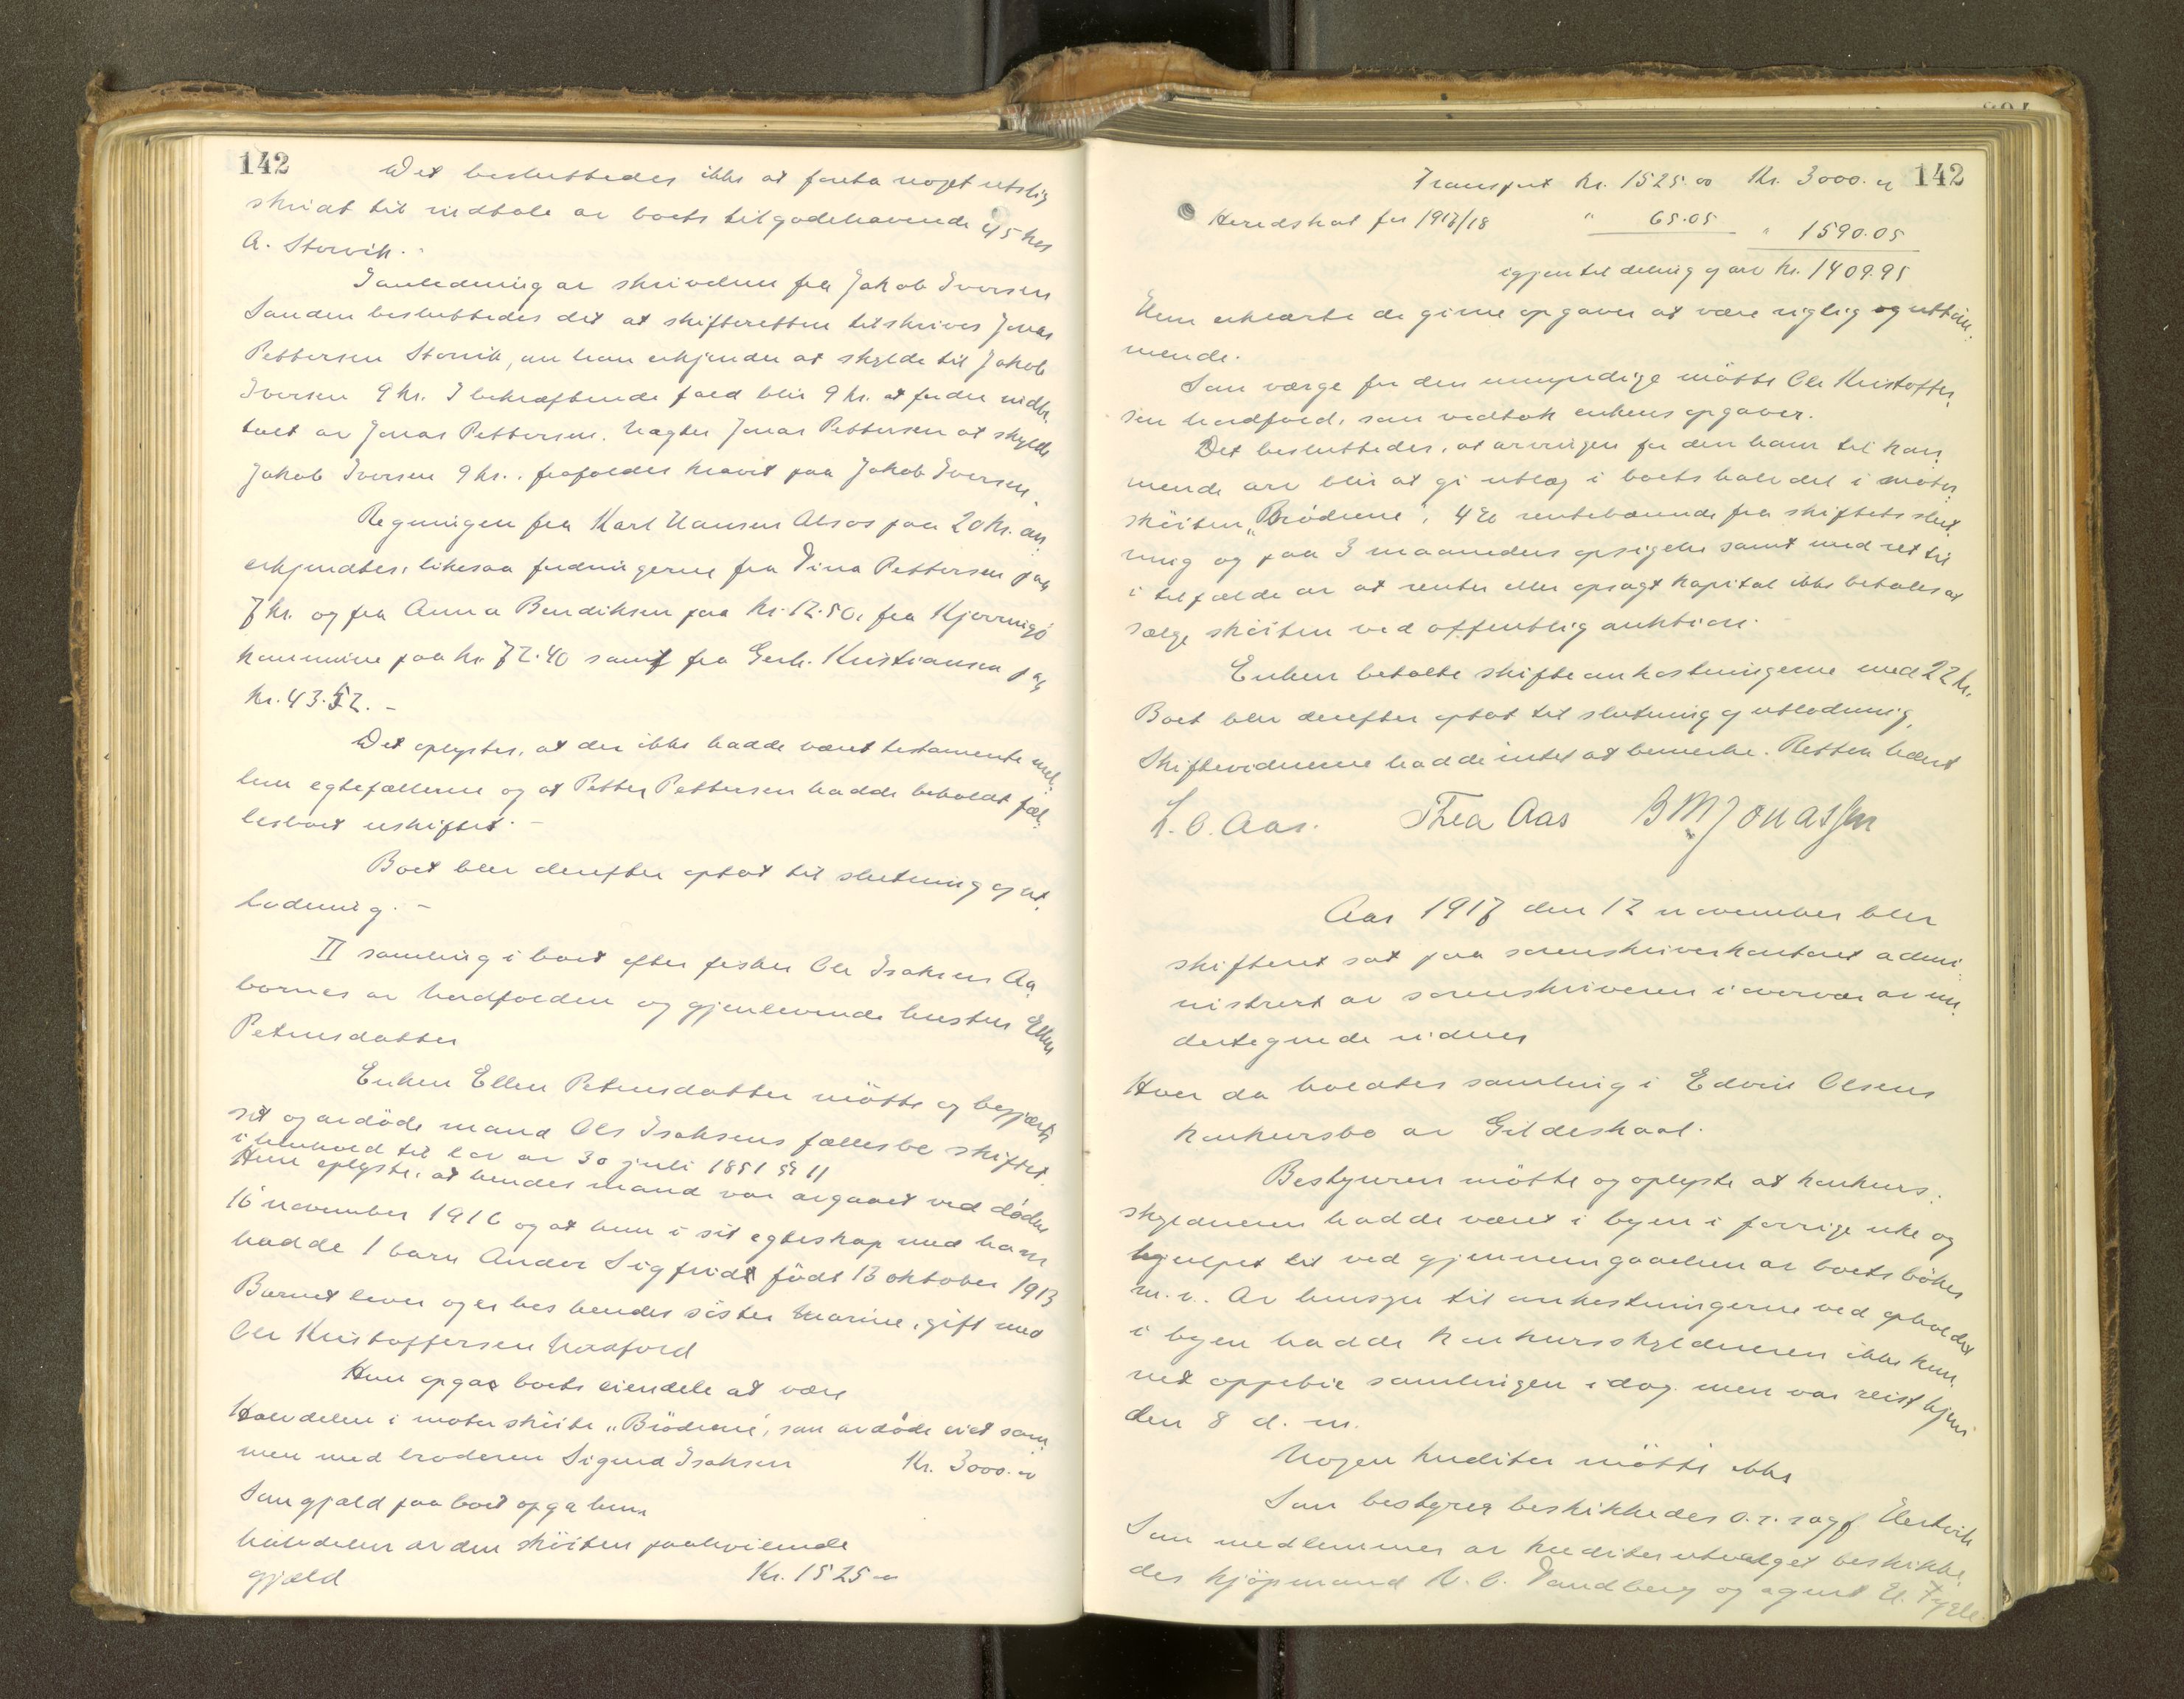 142
Det besluttedes ikke at foreta noget retslig
skridt til indtale av boets tilgodehavende 45 hos
A. Storvik. -
I anledning av skrivelsen fra Jakob Iversen
Sanden besluttedes det at skifteretten tilskriver Jonas
Pettersen Storvik, om han erkjender at skylde til Jakob
Iversen 9 kr. I bekræftende fald blir 9 kr. at fordre indbe
talt av Jonas Pettersen. Nægter Jonas Pettersen at skylde
Jakob Iversen 9 kr., frafaldes kravet paa Jakob Iversen.
Regningen fra Karl Hansen Alsos paa 20 kr. an
erkjendtes, likesaa fordringerne fra Dina Pettersen paa
7 kr. og fra Anna Bendiksen paa kr. 12.50, fra Kjerringø
kommune paa kr. 72.40 samt fra Gerh. Kristiansen paa
kr. 43.52. -
Det oplystes, at der ikke hadde været testamente mel
lem egtefællerne og at Petter Pettersen hadde beholdt fæl
lesboet uskiftet. -
Boet blev derefter optat til slutning og ut
lodning. -
II samling i boet efter fisker Ole Isaksen Aa
bornes av Nordfolden og gjenlevende hustru Ellen
Petrusdatter
Enken Ellen Petrusdatter møtte og begjærte
sit og avdøde mand Ole Isaksens fællesbo skiftet
i henhold til lov av 30 juli 1851 § 11
Hun oplyste, at hendes mand var avgaaet ved døden
16 november 1916 og at hun i sit egteskap med ham
hadde 1 barn Andor Sigfrid født 13 oktober 1913
Barnet lever og er hos hendes søster Marine, gift med
Ole Kristoffersen Nordfold
Hun opgav boets eiendele at være
Halvdelen i motorskøite "Brødrene", som avdøde eiet sam
men med broderen Sigurd Isaksen Kr. 3000.00
Som gjæld paa boet opga hun
halvdelen av den skøiten paahvilende
gjæld Kr. 1525 00
142
Transport kr. 1525.00 Kr. 3000.00
Heredskat for 1917/18 " 65.05 " 1590.05
igjen til deling og arv kr. 1409.95
Hun erklærte de givne opgaver at være rigtig og uttøm
mende.
Som værge for den umyndige møtte Ole Kristoffer
sen Nordfold, som vedtok enkens opgaver.
Det besluttedes, at arvingen for den ham tilkom
mende arv blir at gi utlæg i boets halvdel i motor
skøiten "Brødrene", 4 % rentebærende fra skiftets slut
ning og paa 3 maaneders opsigelse samt med ret til
i tilfælde av at renter eller opsagt kapital ikke betales at
sælge skøiten ved offentlig auktion.
Enken betalte skifteomkostningerne med 22 kr.
Boet blev derefter optat til slutning og utlodning.
Skiftevidnerne hadde intet at bemerke. Retten hævet
L. C. Aas. Thea Aas B M Jonassen
Aar 1917 den 12 november blev
skifteret sat paa sorenskriverkontoret admi
nistrert av sorenskriveren i overvær av un
dertegnede vidner
Hvor da holdtes samling i Edvin Olsens
konkursbo av Gildeskaal.
Bestyreren møtte og oplyste at konkurs
skyldneren hadde været i byen i forrige uke og
hjulpet til ved gjennemgaaelsen av boets bøker
m. v. Av hensyn til omkostningerne ved opholdet
i byen hadde konkursskyldneren ikke kun
net oppebie samlingen idag, men var reist hjem
den 8 d. m.
Nogen kreditor møtte ikke
Som bestyrer beskikkedes o.r.sagf Hertvik
Som medlemmer av kreditorutvalget beskikke
des kjøpmand N. C. Vandberg og agent E. Fygle